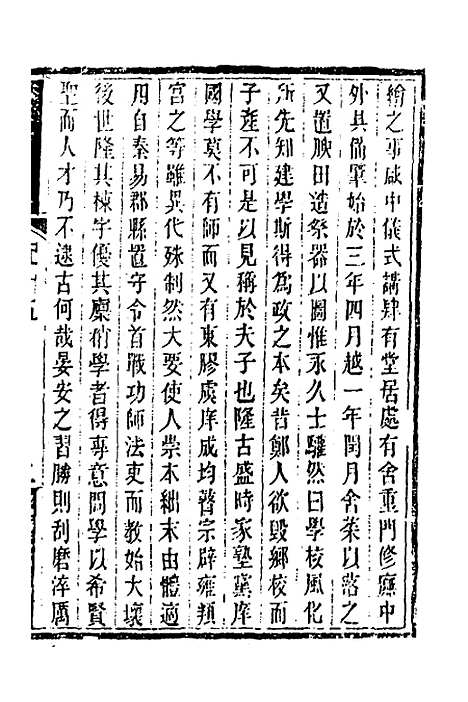 繪之事咸中儀式講肄有堂居處有舍重門修廡中
外具備肇始於三年四月越一年閏月舍菜以落之
又置腴田造祭器以圖惟永久士驩然曰學校風化
所先知建學斯得為政之本矣昔鄭人欲毀鄉校而
子產不可是以見稱於夫子也隆古盛時家塾黨庠
國學莫不有師而又有東膠虞庠成均瞽宗辟雍頖
宮之等雖異代殊制然大要使人崇本絀末由體適
用自秦易郡縣置守令首戰功師法吏而教始大壞
後世隆其棟宇優其廩稍學者得專意問學以希賢
聖而人才乃不逮古何哉晏安之習勝則刮磨淬厲